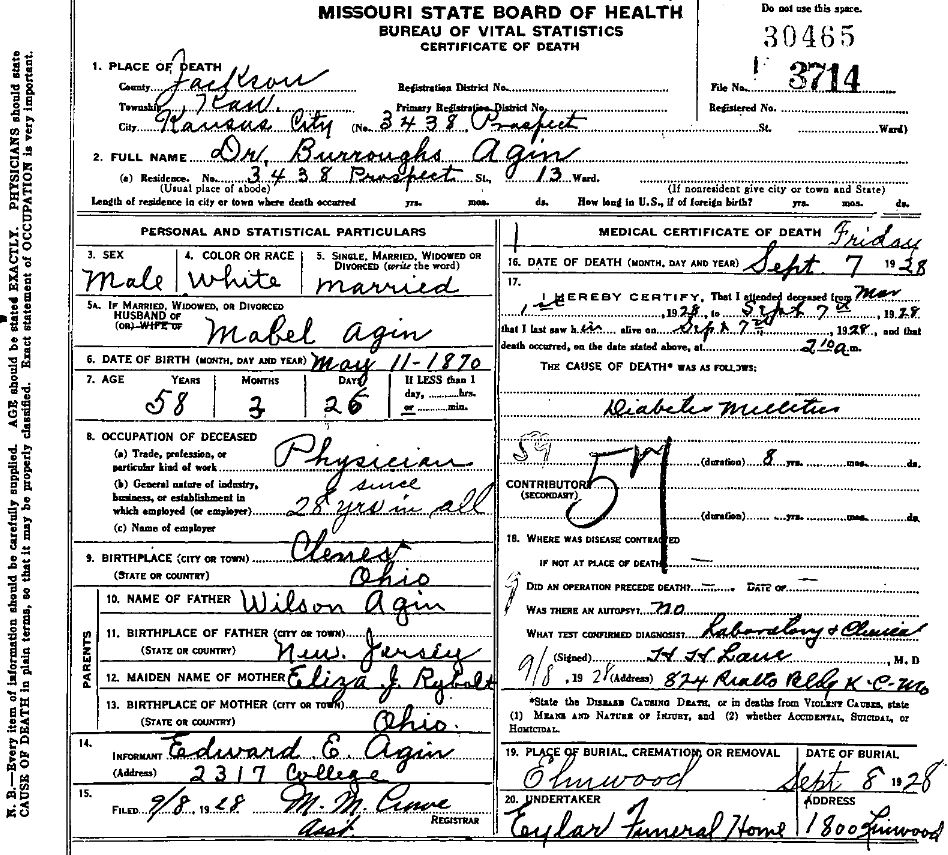 MISSOURI STATE BOARD OF HEALTH
BUREAU OF VITAL STATISTICS
CERTIFICATE OF DEATH
Do not use this space.
30465
1. PLACE OF DEATH
County Jackson
Registration District No.
File No. 3714
Township Kaw
Primary Registration District No.
Registered No.
City Kansas City (No. 3438 Prospect St. Ward)
2. FULL NAME Dr. Burroughs Agin
(a) Residence. No. 3438 Prospect St., 13 Ward.
(Usual place of abode) (If nonresident give city or town and State)
Length of residence in city or town where death occurred yrs. mos. ds. How long in U.S., if of foreign birth? yrs. mos. ds.
PERSONAL AND STATISTICAL PARTICULARS
3. SEX
Male
4. COLOR OR RACE
White
5. SINGLE, MARRIED, WIDOWED OR
DIVORCED (write the word)
married
5A. IF MARRIED, WIDOWED, OR DIVORCED
HUSBAND OF
(OR) WIFE OF
Mabel Agin
6. DATE OF BIRTH (MONTH, DAY AND YEAR) May 11-1870
7. AGE YEARS MONTHS DAYS If LESS than 1
day, hrs.
or min.
58 3 26
8. OCCUPATION OF DECEASED
(a) Trade, profession, or
particular kind of work Physician
(b) General nature of industry,
business, or establishment in
which employed (or employer)
since
28 yrs in all
(c) Name of employer
9. BIRTHPLACE (CITY OR TOWN)
(STATE OR COUNTRY) Ohio
PARENTS
10. NAME OF FATHER Wilson Agin
11. BIRTHPLACE OF FATHER (CITY OR TOWN)
(STATE OR COUNTRY) New Jersey
12. MAIDEN NAME OF MOTHER Eliza J. Rybolt
13. BIRTHPLACE OF MOTHER (CITY OR TOWN)
(STATE OR COUNTRY) Ohio.
14.
INFORMANT Edward E. Agin
(Address) 2317 College
15.
FILED 9/8, 1928 M. M. Crowe
REGISTRAR
Asst
MEDICAL CERTIFICATE OF DEATH
Friday
16. DATE OF DEATH (MONTH, DAY AND YEAR) Sept 7 1928
17.
I HEREBY CERTIFY, That I attended deceased from Mar
1st, 1928, to Sept 7th, 1928
that I last saw him alive on Sept 7th, 1928, and that
death occurred, on the date stated above, at 2 10 a m.
THE CAUSE OF DEATH* WAS AS FOLLOWS:
Diabetes Mellitus
59
57
(duration) 8 yrs. mos. ds.
CONTRIBUTOR
(SECONDARY)
(duration) yrs. mos. ds.
18. WHERE WAS DISEASE CONTRACTED
IF NOT AT PLACE OF DEATH —
DID AN OPERATION PRECEDE DEATH? — DATE OF —
WAS THERE AN AUTOPSY? no
WHAT TEST CONFIRMED DIAGNOSIS? Laboratory & Clinical
(Signed) H H Lane, M. D
9/8, 1928 (Address) 824 Rialto Bldg K-C-Mo
*State the DISEASE CAUSING DEATH, or in deaths from VIOLENT CAUSES, state
(1) MEANS AND NATURE OF INJURY, and (2) whether ACCIDENTAL, SUICIDAL, or
HOMICIDAL.
19. PLACE OF BURIAL, CREMATION, OR REMOVAL
Elmwood
DATE OF BURIAL
Sept 8 1928
20. UNDERTAKER
Eylar Funeral Home
ADDRESS
1800 Linwood
N. B.—Every item of information should be carefully supplied. AGE should be stated EXACTLY. PHYSICIANS should state
CAUSE OF DEATH in plain terms, so that it may be properly classified. Exact statement of OCCUPATION is very important.